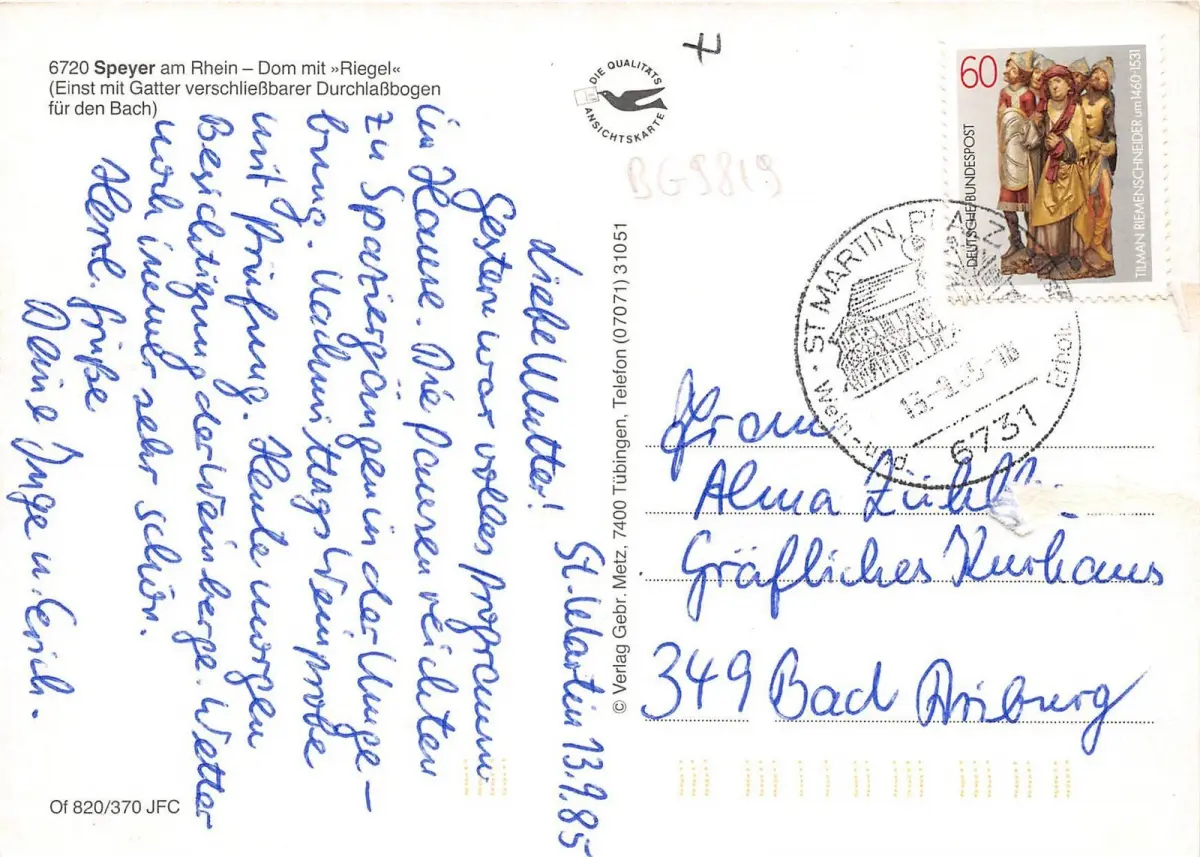 6720 Speyer am Rhein – Dom mit »Riegel«
(Einst mit Gatter verschließbarer Durchlaßbogen
für den Bach)
St. Martin 13.9.85
Liebe Mutter!
Gestern war volles Programm
im Hause. Die Pausen reichten
zu Spaziergängen in der Umge-
bung. Nachmittags Weinprobe
mit Prüfung. Heute morgen
Besichtigung der Weinberge. Wetter
noch immer sehr schön.
Herzl. Grüße
Deine Inge u. Erich.
Of 820/370 JFC
© Verlag Gebr. Metz, 7400 Tübingen, Telefon (07071) 31051
DIE QUALITÄTS
ANSICHTSKARTE
BG9819
60
DEUTSCHE BUNDESPOST
TILMAN RIEMENSCHNEIDER um 1460-1531
ST MARTIN
Wein- und
Erhol
6731
Frau
Alma
Gräfliches Kurhaus
349 Bad Driburg